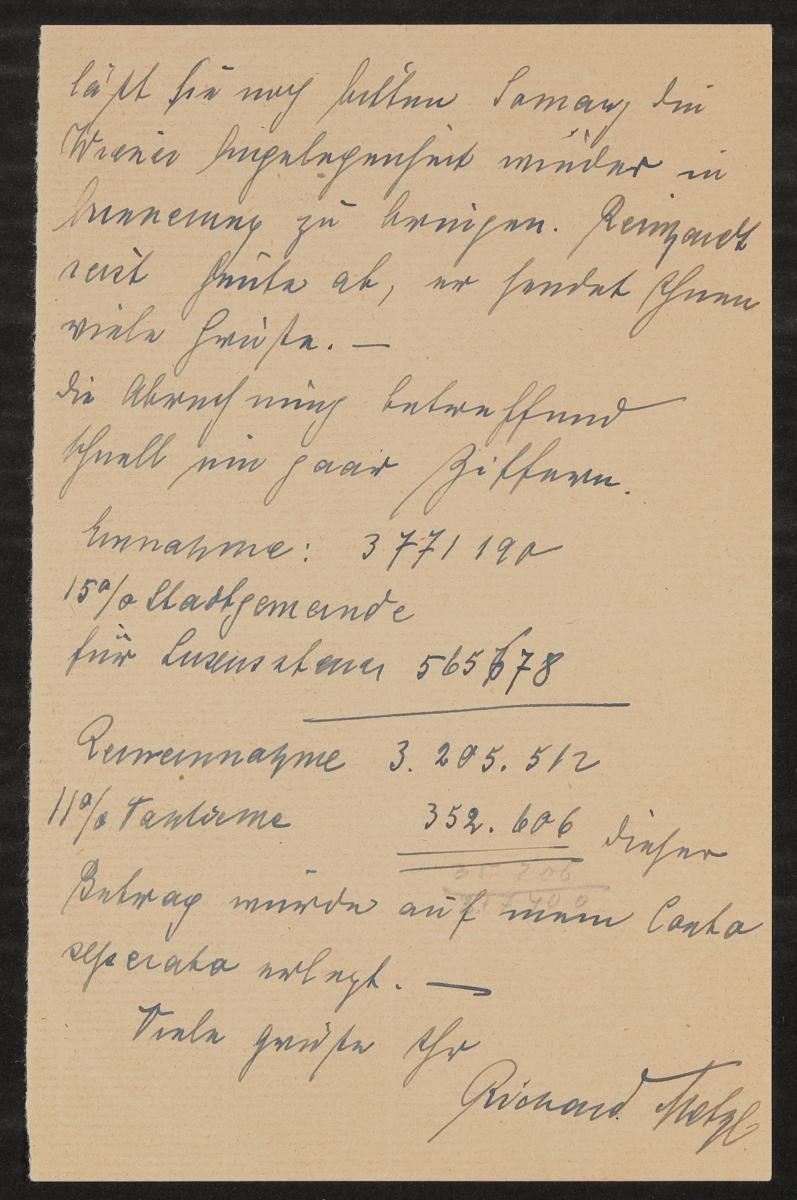 läßt Sie noch bitten Samary die
Wiener Angelegenheit wieder in
Erinnerung zu bringen. Reinhardt
reist heute ab, er sendet Ihnen
viele Grüße. —
Die Abrechnung betreffend
schnell ein paar Ziffern.
Einnahme: 3771190
15% Stadtgemeinde
für Luxussteuer 565678
Reineinnahme 3.205.512
11% Tantieme 352.606 dieser
35 206
Betrag wurde auf mein Conto
seperato erlegt. —
Viele Grüße Ihr
Richard Metzl